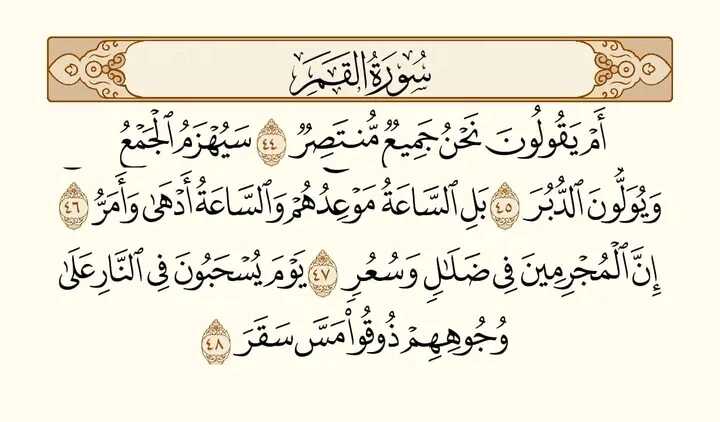 سُورَةُ القَمَرِ
أَمۡ يَقُولُونَ نَحۡنُ جَمِيعٞ مُّنتَصِرٞ ٤٤ سَيُهۡزَمُ ٱلۡجَمۡعُ
وَيُوَلُّونَ ٱلدُّبُرَ ٤٥ بَلِ ٱلسَّاعَةُ مَوۡعِدُهُمۡ وَٱلسَّاعَةُ أَدۡهَىٰ وَأَمَرُّ ٤٦
إِنَّ ٱلۡمُجۡرِمِينَ فِي ضَلَٰلٖ وَسُعُرٖ ٤٧ يَوۡمَ يُسۡحَبُونَ فِي ٱلنَّارِ عَلَىٰ
وُجُوهِهِمۡ ذُوقُواْ مَسَّ سَقَرَ ٤٨